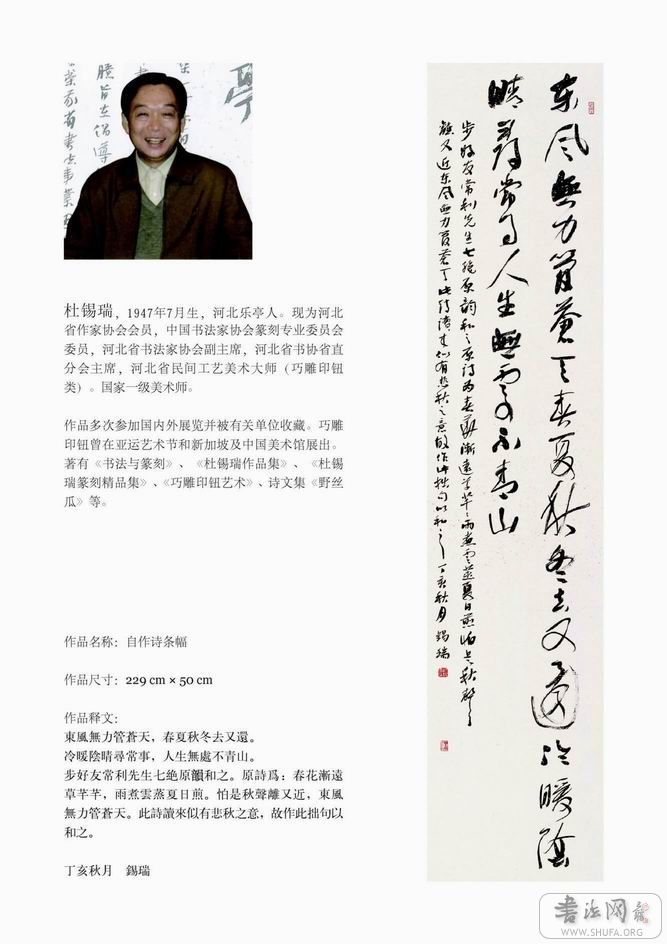 杜锡瑞，1947年7月生，河北乐亭人。现为河北
省作家协会会员，中国书法家协会篆刻专业委员会
委员，河北省书法家协会副主席，河北省书协省直
分会主席，河北省民间工艺美术大师（巧雕印钮
类）。国家一级美术师。
作品多次参加国内外展览并被有关单位收藏。巧雕
印钮曾在亚运艺术节和新加坡及中国美术馆展出。
著有《书法与篆刻》、《杜锡瑞作品集》、《杜锡
瑞篆刻精品集》、《巧雕印钮艺术》、诗文集《野丝
瓜》等。
作品名称：自作诗条幅
作品尺寸：229 cm × 50 cm
作品释文：
東風無力管蒼天，春夏秋冬去又還。
冷暖陰晴尋常事，人生無處不青山。
步好友常利先生七絶原韻和之。原詩爲：春花漸遠
草芊芊，雨煮雲蒸夏日煎。怕是秋聲離又近，東風
無力管蒼天。此詩讀來似有悲秋之意，故作此拙句以
和之。
丁亥秋月　錫瑞
东风無力管蒼天春夏秋冬去又還冷暖陰
晴尋常事人生無處不青山
步好友常利先生七绝原韵和之原詩为春花漸遠草芊芊雨煮雲蒸夏日煎怕是秋聲
離又近东风無力管蒼天此詩讀来似有悲秋之意故作此拙句以和之丁亥秋月錫瑞
書法网
WWW.SHUFA.ORG